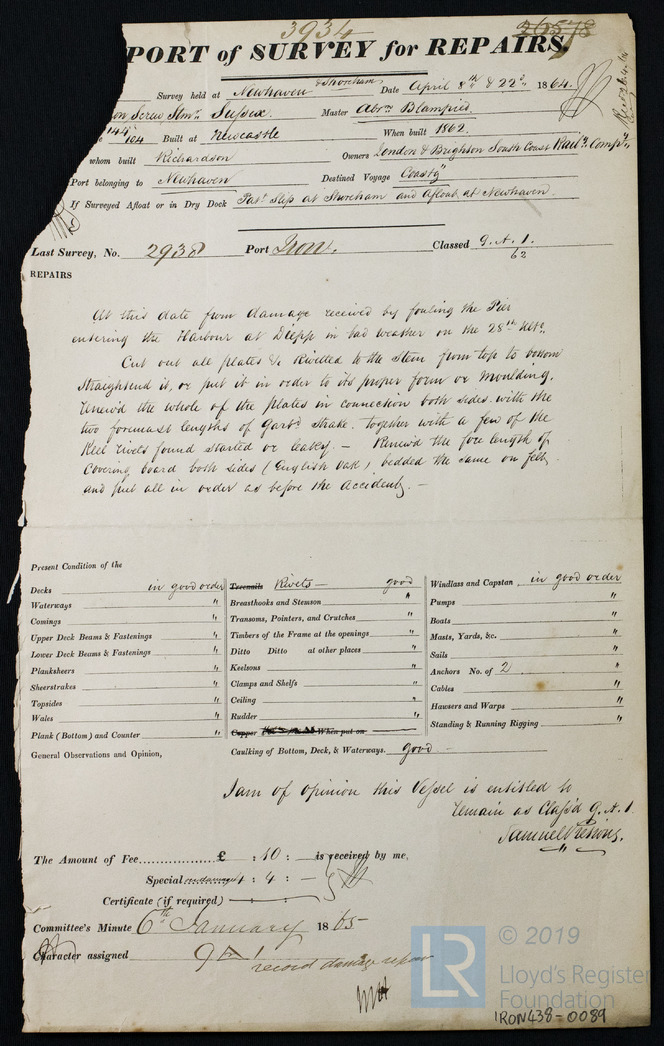 3934
26578
PORT of SURVEY for REPAIRS,
Survey held at Newhaven & Shoreham Date April 8th & 22d 1864.
on Screw Stmr Sussex. Master Abrm Blampied.
144/104 Built at Newcastle When built 1862.
whom built Richardson Owners London & Brighton South Coast Railw Compy,
Port belonging to Newhaven Destined Voyage Coastg
If Surveyed Afloat or in Dry Dock Patt Slip at Shoreham and Afloat at Newhaven.
Last Survey, No. 2938 Port Iron. Classed 9. A. 1.
62
REPAIRS
At this date from damage received by fouling the Pier
entering the Harbour at Diepp in bad weather on the 28th Ulto.
Cut out all plates &c Rivetted to the Stem from top to bottom
Straightend it, or put it in order to its proper form or moulding.
Renew'd the whole of the plates in connection both sides with the
two foremost lengths of Garbd Strake. together with a few of the
Keel rivets found started or leaky. — Renew'd the fore length of
Covering board both sides (English Oak), bedded the same on felt,
and put all in order as before the accident. —
Present Condition of the
Decks in good order Treenails Rivets — good Windlass and Capstan in good order
Waterways " Breasthooks and Stemson " Pumps "
Comings " Transoms, Pointers, and Crutches " Boats "
Upper Deck Beams & Fastenings " Timbers of the Frame at the openings " Masts, Yards, &c. "
Lower Deck Beams & Fastenings " Ditto Ditto at other places " Sails "
Planksheers " Keelsons " Anchors No. of 2 "
Sheerstrakes " Clamps and Shelfs " Cables "
Topsides " Ceiling " Hawsers and Warps "
Wales " Rudder " Standing & Running Rigging "
Plank (Bottom) and Counter " Copper When put on
General Observations and Opinion, Caulking of Bottom, Deck, & Waterways. good —
I am of opinion this Vessel is entitled to
remain as Class'd 9. A. 1.
Samuel
The Amount of Fee............... £ : 10 : — is received by me,
Special : 4 : —
Certificate (if required)
Committee's Minute 6th January 1865
Character assigned 9 A 1
record damage repair
© 2019
LR
Lloyd's Register
Foundation
IRON438-0089